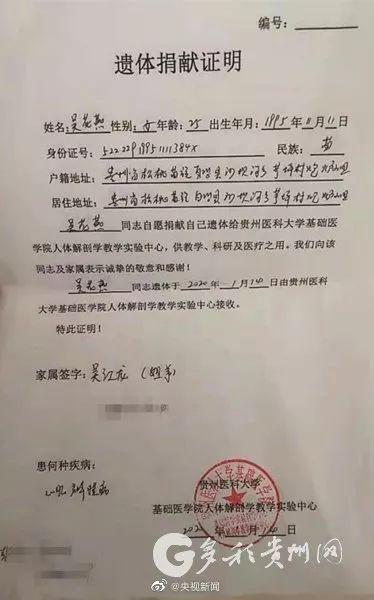 编号：
遗体捐献证明
姓名：吴花燕 性别：女 年龄：25 出生年月：1995年11月11日
身份证号：52222919951111384X 民族：苗
户籍地址：贵州省松桃苗族自治县沙坝河乡茅坪村
居住地址：贵州省松桃苗族自治县沙坝河乡茅坪村
吴花燕 同志自愿捐献自己遗体给贵州医科大学基础医
学院人体解剖学教学实验中心，供教学、科研及医疗之用。我们向该
同志及家属表示诚挚的敬意和感谢！
吴花燕 同志遗体于 2020 年 1 月 14 日由贵州医科
大学基础医学院人体解剖学教学实验中心接收。
特此证明！
家属签字：吴江龙（姐弟）
患何种疾病：
贵州医科大学
基础医学院人体解剖学教学实验中心
年 月 日
多彩贵州网
@央视新闻